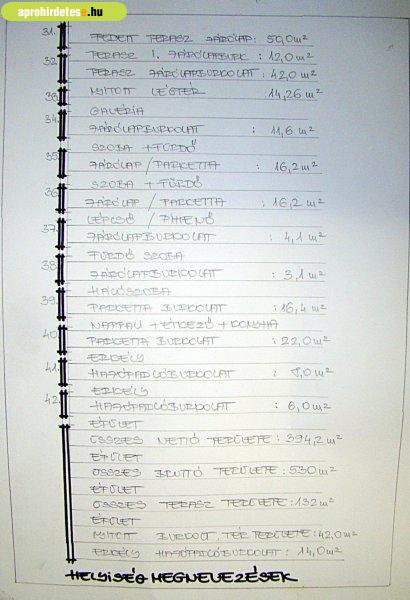 aprohirdetese.hu
31. FEDETT TERASZ JÁRÓLAP: 50,0 m²
32 TERASZ I. JÁRÓLAPBURK. : 12,0 m²
TERASZ JÁRÓLAPBURKOLAT : 42,0 m²
33 NYITOTT LÉGTÉR 14,26 m²
GALÉRIA
34. JÁRÓLAPBURKOLAT : 11,6 m²
SZOBA + FÜRDŐ
35 JÁRÓLAP / PARKETTA : 16,2 m²
SZOBA + FÜRDŐ
36 JÁRÓLAP / PARKETTA : 16,2 m²
LÉPCSŐ / PIHENŐ
37 JÁRÓLAPBURKOLAT : 4,1 m²
FÜRDŐ SZOBA
38 JÁRÓLAPBURKOLAT : 3,1 m²
HÁLÓSZOBA
39 PARKETTA BURKOLAT : 16,4 m²
NAPPALI + ÉTKEZŐ + KONYHA
40 PARKETTA BURKOLAT : 22,0 m²
ERKÉLY
41. HAJÓPADLÓBURKOLAT : ,0 m²
ERKÉLY
42 HAJÓPADLÓBURKOLAT : 6,0 m²
ÉPÜLET
ÖSSZES NETTÓ TERÜLETE : 394,2 m²
ÉPÜLET
ÖSSZES BRUTTÓ TERÜLETE : 530 m²
ÉPÜLET
ÖSSZES TERASZ TERÜLETE : 132 m²
ÉPÜLET
NYITOTT BURKOLT, TÉR TERÜLETE : 42,0 m²
ERKÉLY HAJÓPADLÓBURKOLAT : 14,0 m²
HELYISÉG MEGNEVEZÉSEK